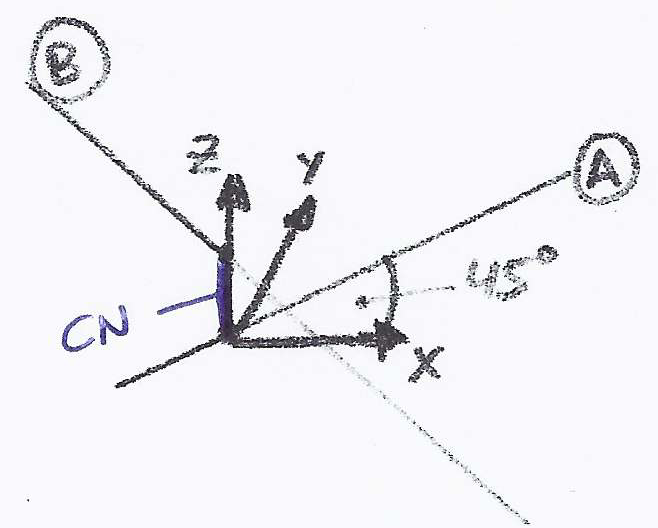 B
Z
Y
A
45°
CN
X